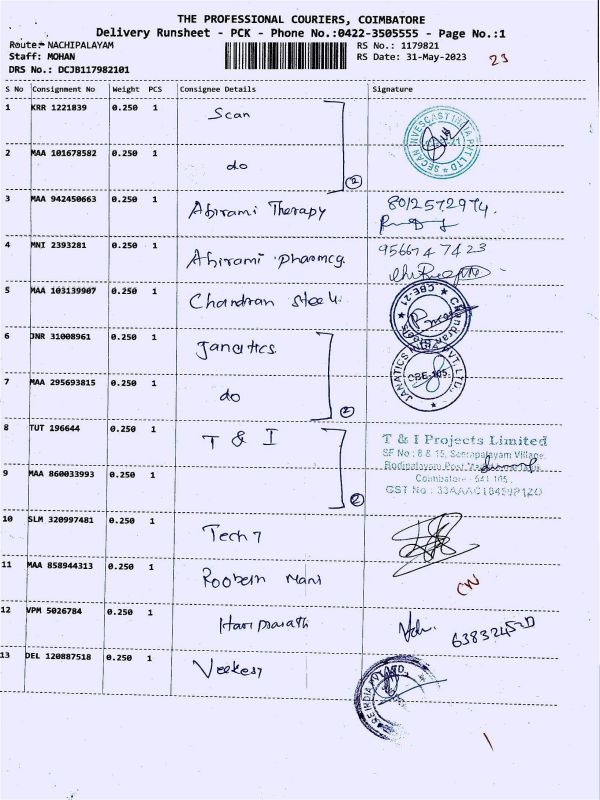 THE PROFESSIONAL COURIERS, COIMBATORE
Delivery Runsheet - PCK - Phone No.:0422-3505555 - Page No.:1
Route: NACHIPALAYAM RS No.: 1179821
Staff: MOHAN RS Date: 31-May-2023 23
DRS No.: DCJB117982101
S No Consignment No Weight PCS Consignee Details Signature
1 KRR 1221839 0.250 1 Scan
2 MAA 101678582 0.250 1 do 2
3 MAA 942450663 0.250 1 Abirami Therapy 8012572974.
4 MNI 2393281 0.250 1 Abirami pharmcy. 9566747423
5 MAA 103139907 0.250 1 Chandran Steel
CBE-21
6 JNR 31008961 0.250 1 Janatics
JANATICS INDIA PVT. LTD.,
CBE-105
7 MAA 295693815 0.250 1 do 2
8 TUT 196644 0.250 1 T & I T & I Projects Limited
SF No : 8 & 15, Seerapalayam Village
Bodipalayam Post
Coimbatore - 641 105
GST No :
9 MAA 860033993 0.250 1 2
10 SLM 320997481 0.250 1 Tech 7
11 MAA 858944313 0.250 1 Mani
12 VPM 5026784 0.250 1 Hari prasath
13 DEL 120887518 0.250 1